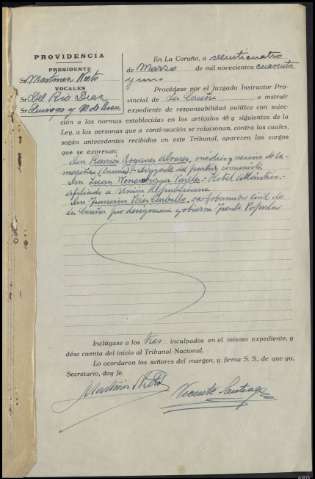 PROVIDENCIA
PRESIDENTE
Sr Martinez Nieto
VOCALES
Sr Del Rio Diaz
Sr
En La Coruña, a veinticuatro
de Marzo de mil novecientos cuarenta
y uno.
Procédase por el Juzgado Instructor Pro-
vincial de La Coruña a incoar
expediente de responsabilidad política con suje-
ción a las normas establecidas en los artículos 45 y siguientes de la
Ley, a las personas que a continuación se relacionan, contra las cuales,
según antecedentes recibidos en este Tribunal, aparecen los cargos
que se expresan:
Don Ramón Alonso, médico y vecino de
abogado de partido comunista
Don Juan - Hotel Atlántico -
afiliado a Unión Republicana
Don Carballo, ex-gobernador civil de
La Coruña por designación gobierno frente Popular
Inclúyase a los tres inculpados en el mismo expediente, y
dése cuenta del inicio al Tribunal Nacional.
Lo acordaron los señores del margen, y firma S. S. de que yo,
Secretario, doy fe.
Martinez Nieto
Vicente Santiago